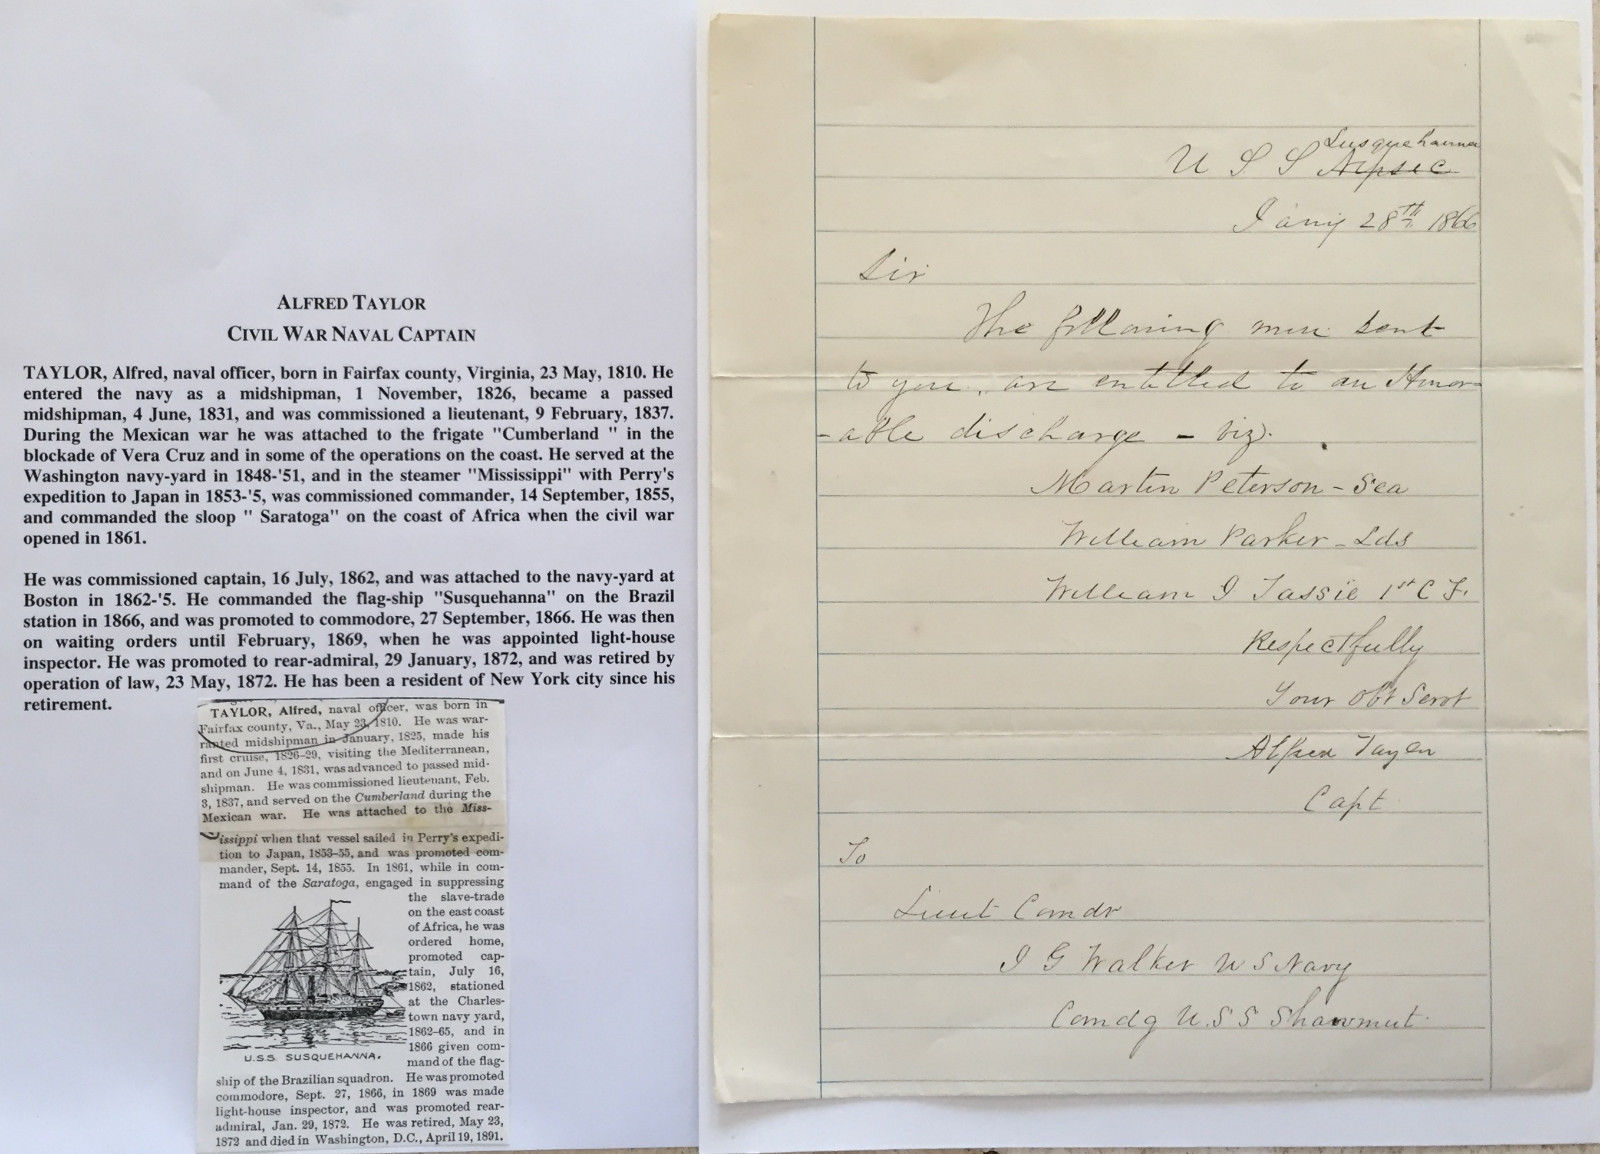 ALFRED TAYLOR
CIVIL WAR NAVAL CAPTAIN
TAYLOR, Alfred, naval officer, born in Fairfax county, Virginia, 23 May, 1810. He
entered the navy as a midshipman, 1 November, 1826, became a passed
midshipman, 4 June, 1831, and was commissioned a lieutenant, 9 February, 1837.
During the Mexican war he was attached to the frigate "Cumberland " in the
blockade of Vera Cruz and in some of the operations on the coast. He served at the
Washington navy-yard in 1848-'51, and in the steamer "Mississippi" with Perry's
expedition to Japan in 1853-'5, was commissioned commander, 14 September, 1855,
and commanded the sloop " Saratoga" on the coast of Africa when the civil war
opened in 1861.
He was commissioned captain, 16 July, 1862, and was attached to the navy-yard at
Boston in 1862-'5. He commanded the flag-ship "Susquehanna" on the Brazil
station in 1866, and was promoted to commodore, 27 September, 1866. He was then
on waiting orders until February, 1869, when he was appointed light-house
inspector. He was promoted to rear-admiral, 29 January, 1872, and was retired by
operation of law, 23 May, 1872. He has been a resident of New York city since his
retirement.
TAYLOR, Alfred, naval officer, was born in
Fairfax county, Va., May 23, 1810. He was war-
ranted midshipman in January, 1825, made his
first cruise, 1826-29, visiting the Mediterranean,
and on June 4, 1831, was advanced to passed mid-
shipman. He was commissioned lieutenant, Feb.
3, 1837, and served on the Cumberland during the
Mexican war. He was attached to the Miss-
issippi when that vessel sailed in Perry's expedi-
tion to Japan, 1853-55, and was promoted com-
mander, Sept. 14, 1855. In 1861, while in com-
mand of the Saratoga, engaged in suppressing
the slave-trade
on the east coast
of Africa, he was
ordered home,
promoted cap-
tain, July 16,
1862, stationed
at the Charles-
town navy yard,
1862-65, and in
1866 given com-
mand of the flag-
U.S.S. SUSQUEHANNA.
ship of the Brazilian squadron. He was promoted
commodore, Sept. 27, 1866, in 1869 was made
light-house inspector, and was promoted rear-
admiral, Jan. 29, 1872. He was retired, May 23,
1872 and died in Washington, D.C., April 19, 1891.
Susquehanna
U S S Nipsic
Jany 28th 1866
Sir
The following men sent
to you, are entitled to an Honor-
-able discharge - viz.
Martin Peterson - Sea
William Parker - Lds
William J Tassie 1st C F.
Respectfully
Your Obt Servt
Alfred Taylor
Capt
To
Lieut Comdr
J G Walker U S Navy
Comdg U.S S Shawmut